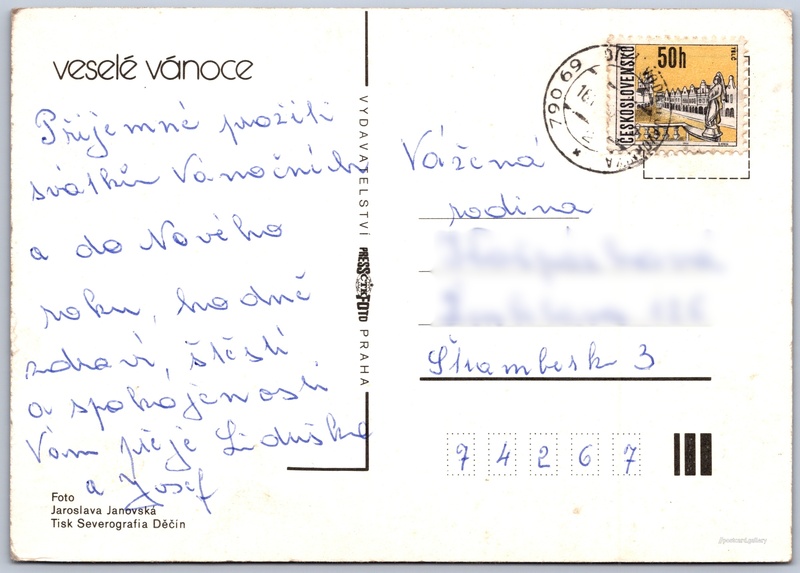 veselé vánoce
Příjemné prožití
svátků Vánočních
a do Nového
roku, hodně
zdraví, štěstí
a spokojenosti
Vám přeje Liduška
a Josef
Foto
Jaroslava Janovská
Tisk Severografia Děčín
VYDAVATELSTVÍ PRESSČTKFOTO PRAHA
79069
ČESKOSLOVENSKO
50h
TELČ
Vážená
rodina
Štramberk 3
74267
@postcard.gallery